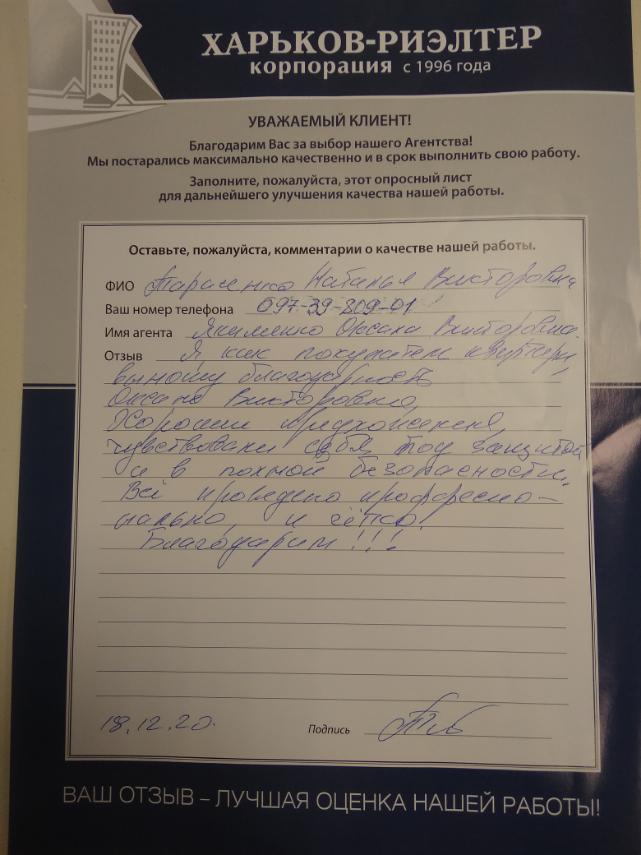 ХАРЬКОВ-РИЭЛТЕР
корпорация с 1996 года
УВАЖАЕМЫЙ КЛИЕНТ!
Благодарим Вас за выбор нашего Агентства!
Мы постарались максимально качественно и в срок выполнить свою работу.
Заполните, пожалуйста, этот опросный лист
для дальнейшего улучшения качества нашей работы.
Оставьте, пожалуйста, комментарии о качестве нашей работы.
ФИО Тарасенко Наталья Викторовна
Ваш номер телефона 097-39-809-01
Имя агента Якименко Оксана Викторовна.
Отзыв Я, как покупатель квартиры,
выношу благодарность
Оксане Викторовне,
Хорошие
чувствовали себя под защитой
и в полной безопасности.
Всё проведено профессио-
нально, и чётко!
Благодарим!!!
18.12.20.
Подпись
ВАШ ОТЗЫВ – ЛУЧШАЯ ОЦЕНКА НАШЕЙ РАБОТЫ!